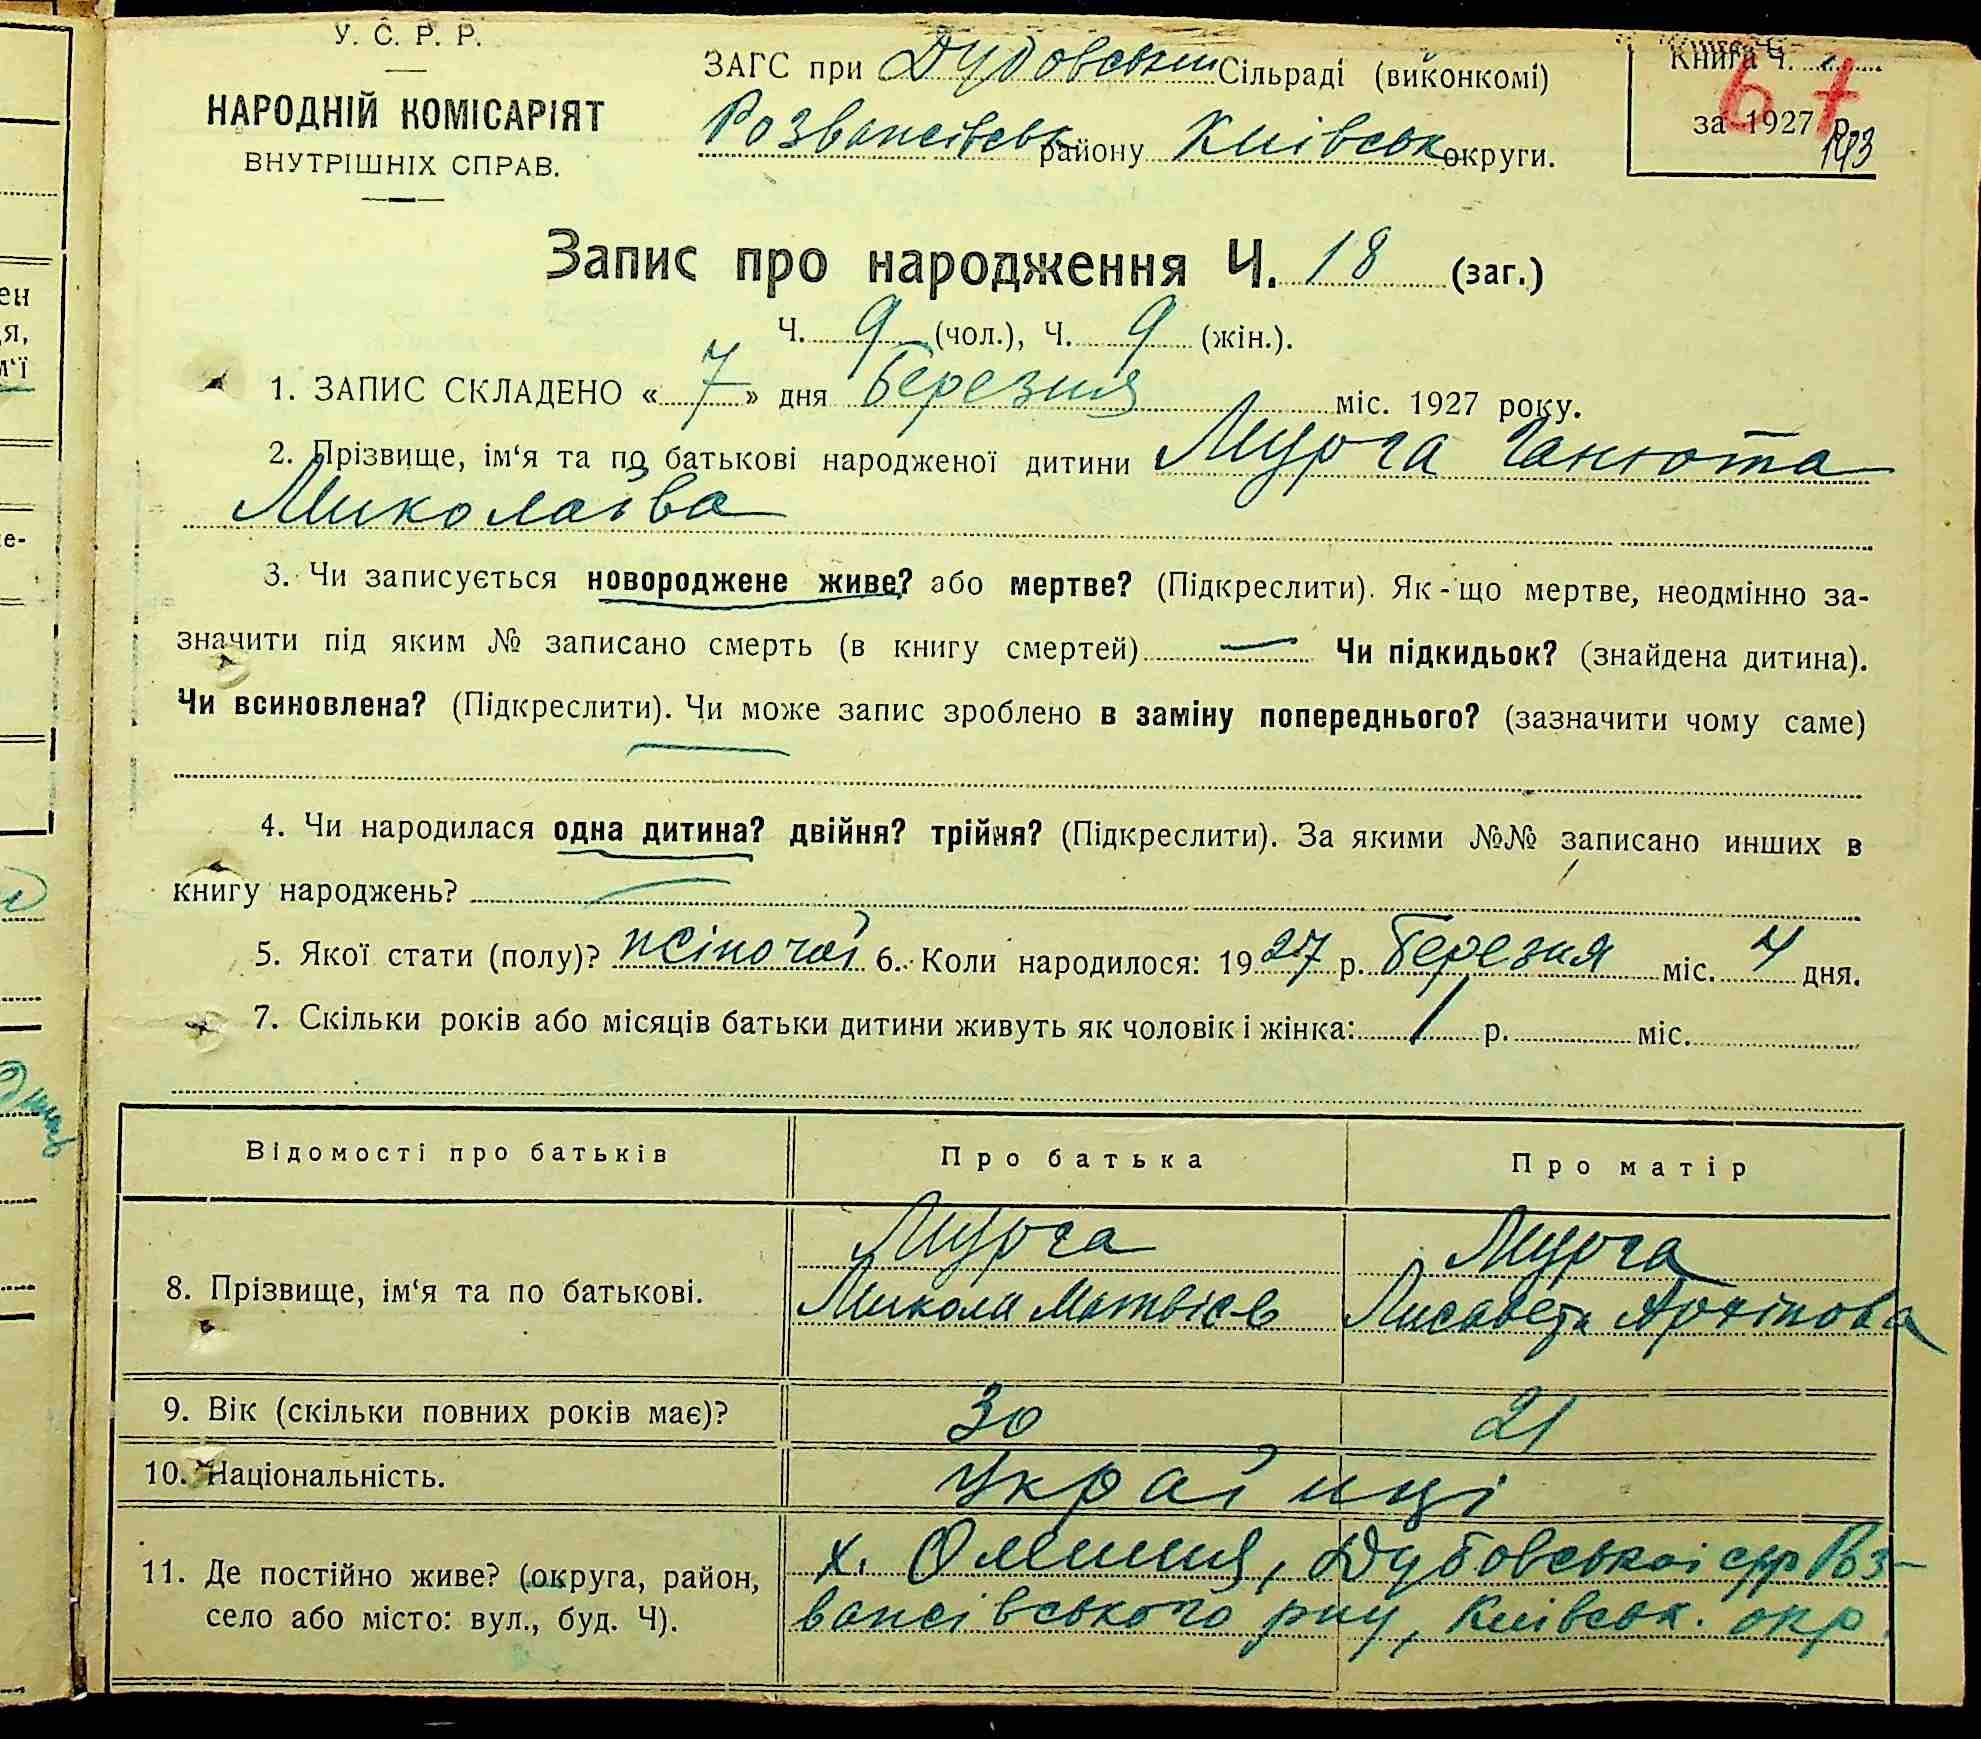 У. С. Р. Р.
НАРОДНІЙ КОМІСАРІЯТ
ВНУТРІШНІХ СПРАВ.
ЗАГС при Дубовськи Сільраді (виконкомі)
Розважівськ району Київськ округи.
Книга Ч.
за 1927 р.
67
193
Запис про народження Ч. 18 (заг.)
Ч. 9 (чол.), Ч. 9 (жін.).
1. ЗАПИС СКЛАДЕНО « 7 » дня Березня міс. 1927 року.
2. Прізвище, ім‘я та по батькові народженої дитини Мурга Ганюта
Миколаїва
3. Чи записується новороджене живе? або мертве? (Підкреслити). Як-що мертве, неодмінно за-
значити під яким № записано смерть (в книгу смертей) — Чи підкидьок? (знайдена дитина).
Чи всиновлена? (Підкреслити). Чи може запис зроблено в заміну попереднього? (зазначити чому саме)
4. Чи народилася одна дитина? двійня? трійня? (Підкреслити). За якими №№ записано инших в
книгу народжень?
5. Якої стати (полу)? жіночої 6. Коли народилося: 1927 р. Березня міс. 4 дня.
7. Скільки років або місяців батьки дитини живуть як чоловік і жінка: 1 р. міс.
Відомості про батьків Про батька Про матір
8. Прізвище, ім‘я та по батькові.
Мурга
Микола Матвієв
Мурга
Лисавета Архіпова
9. Вік (скільки повних років має)? 30 21
10. Національність. Українці
11. Де постійно живе? (округа, район,
село або місто: вул., буд. Ч).
х. Дубовської срр Роз-
важівського рну, Київськ. окр.
ен
я,
м‘ї
е-